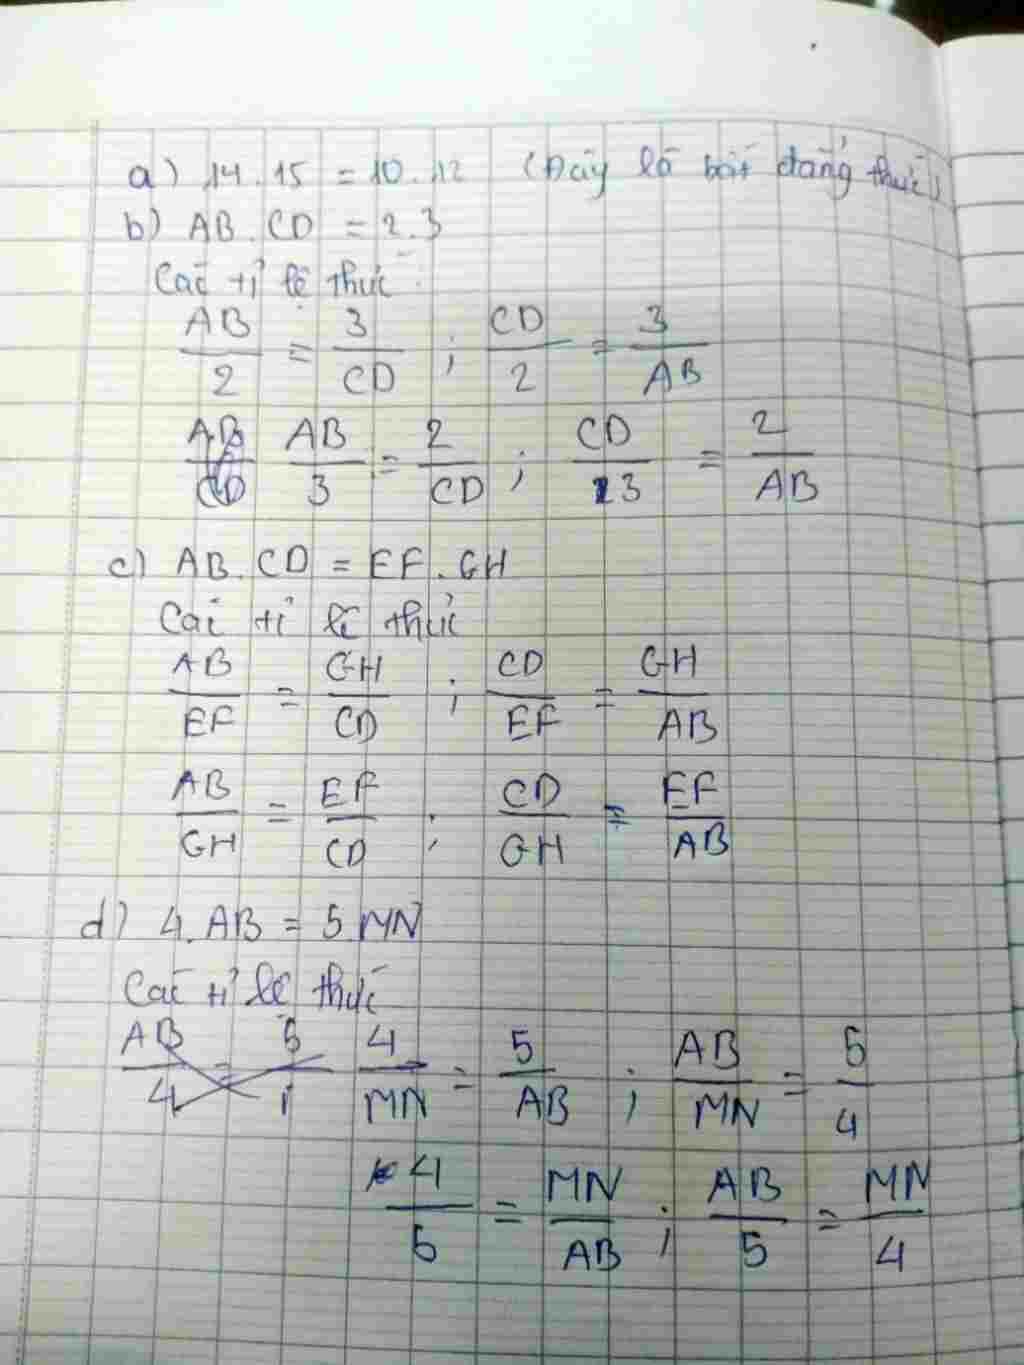 a) 14.15 = 10.12 (Đây là bất đẳng thức)
b) AB.CD = 2.3
Các tỉ lệ thức
AB/2 = 3/CD ; CD/2 = 3/AB
AB/3 = 2/CD ; CD/3 = 2/AB
c) AB.CD = EF.GH
Các tỉ lệ thức
AB/EF = GH/CD ; CD/EF = GH/AB
AB/GH = EF/CD ; CD/GH = EF/AB
d) 4.AB = 5.MN
Các tỉ lệ thức
4/MN = 5/AB ; AB/MN = 5/4
4/5 = MN/AB ; AB/5 = MN/4